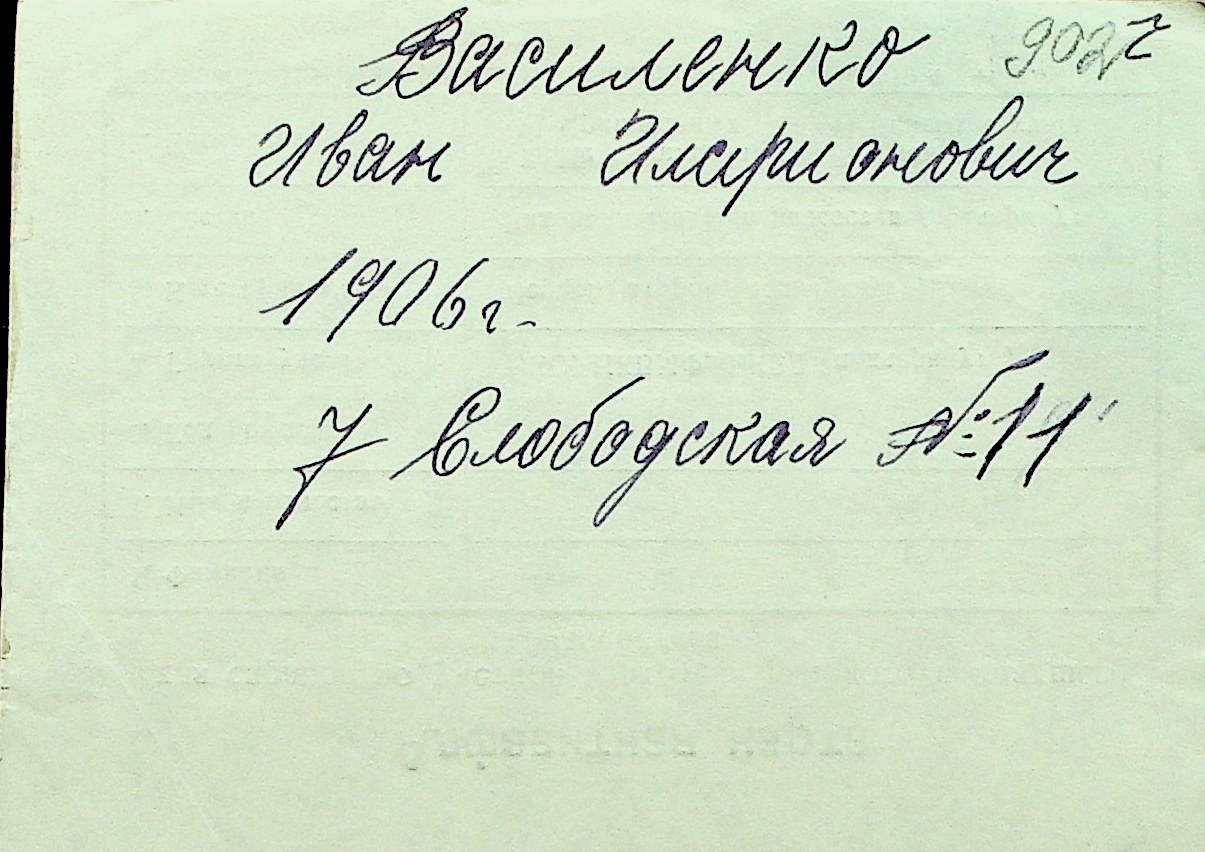 Василенко 902 г
Иван Иларионович
1906 г.
7 Слободская № 11